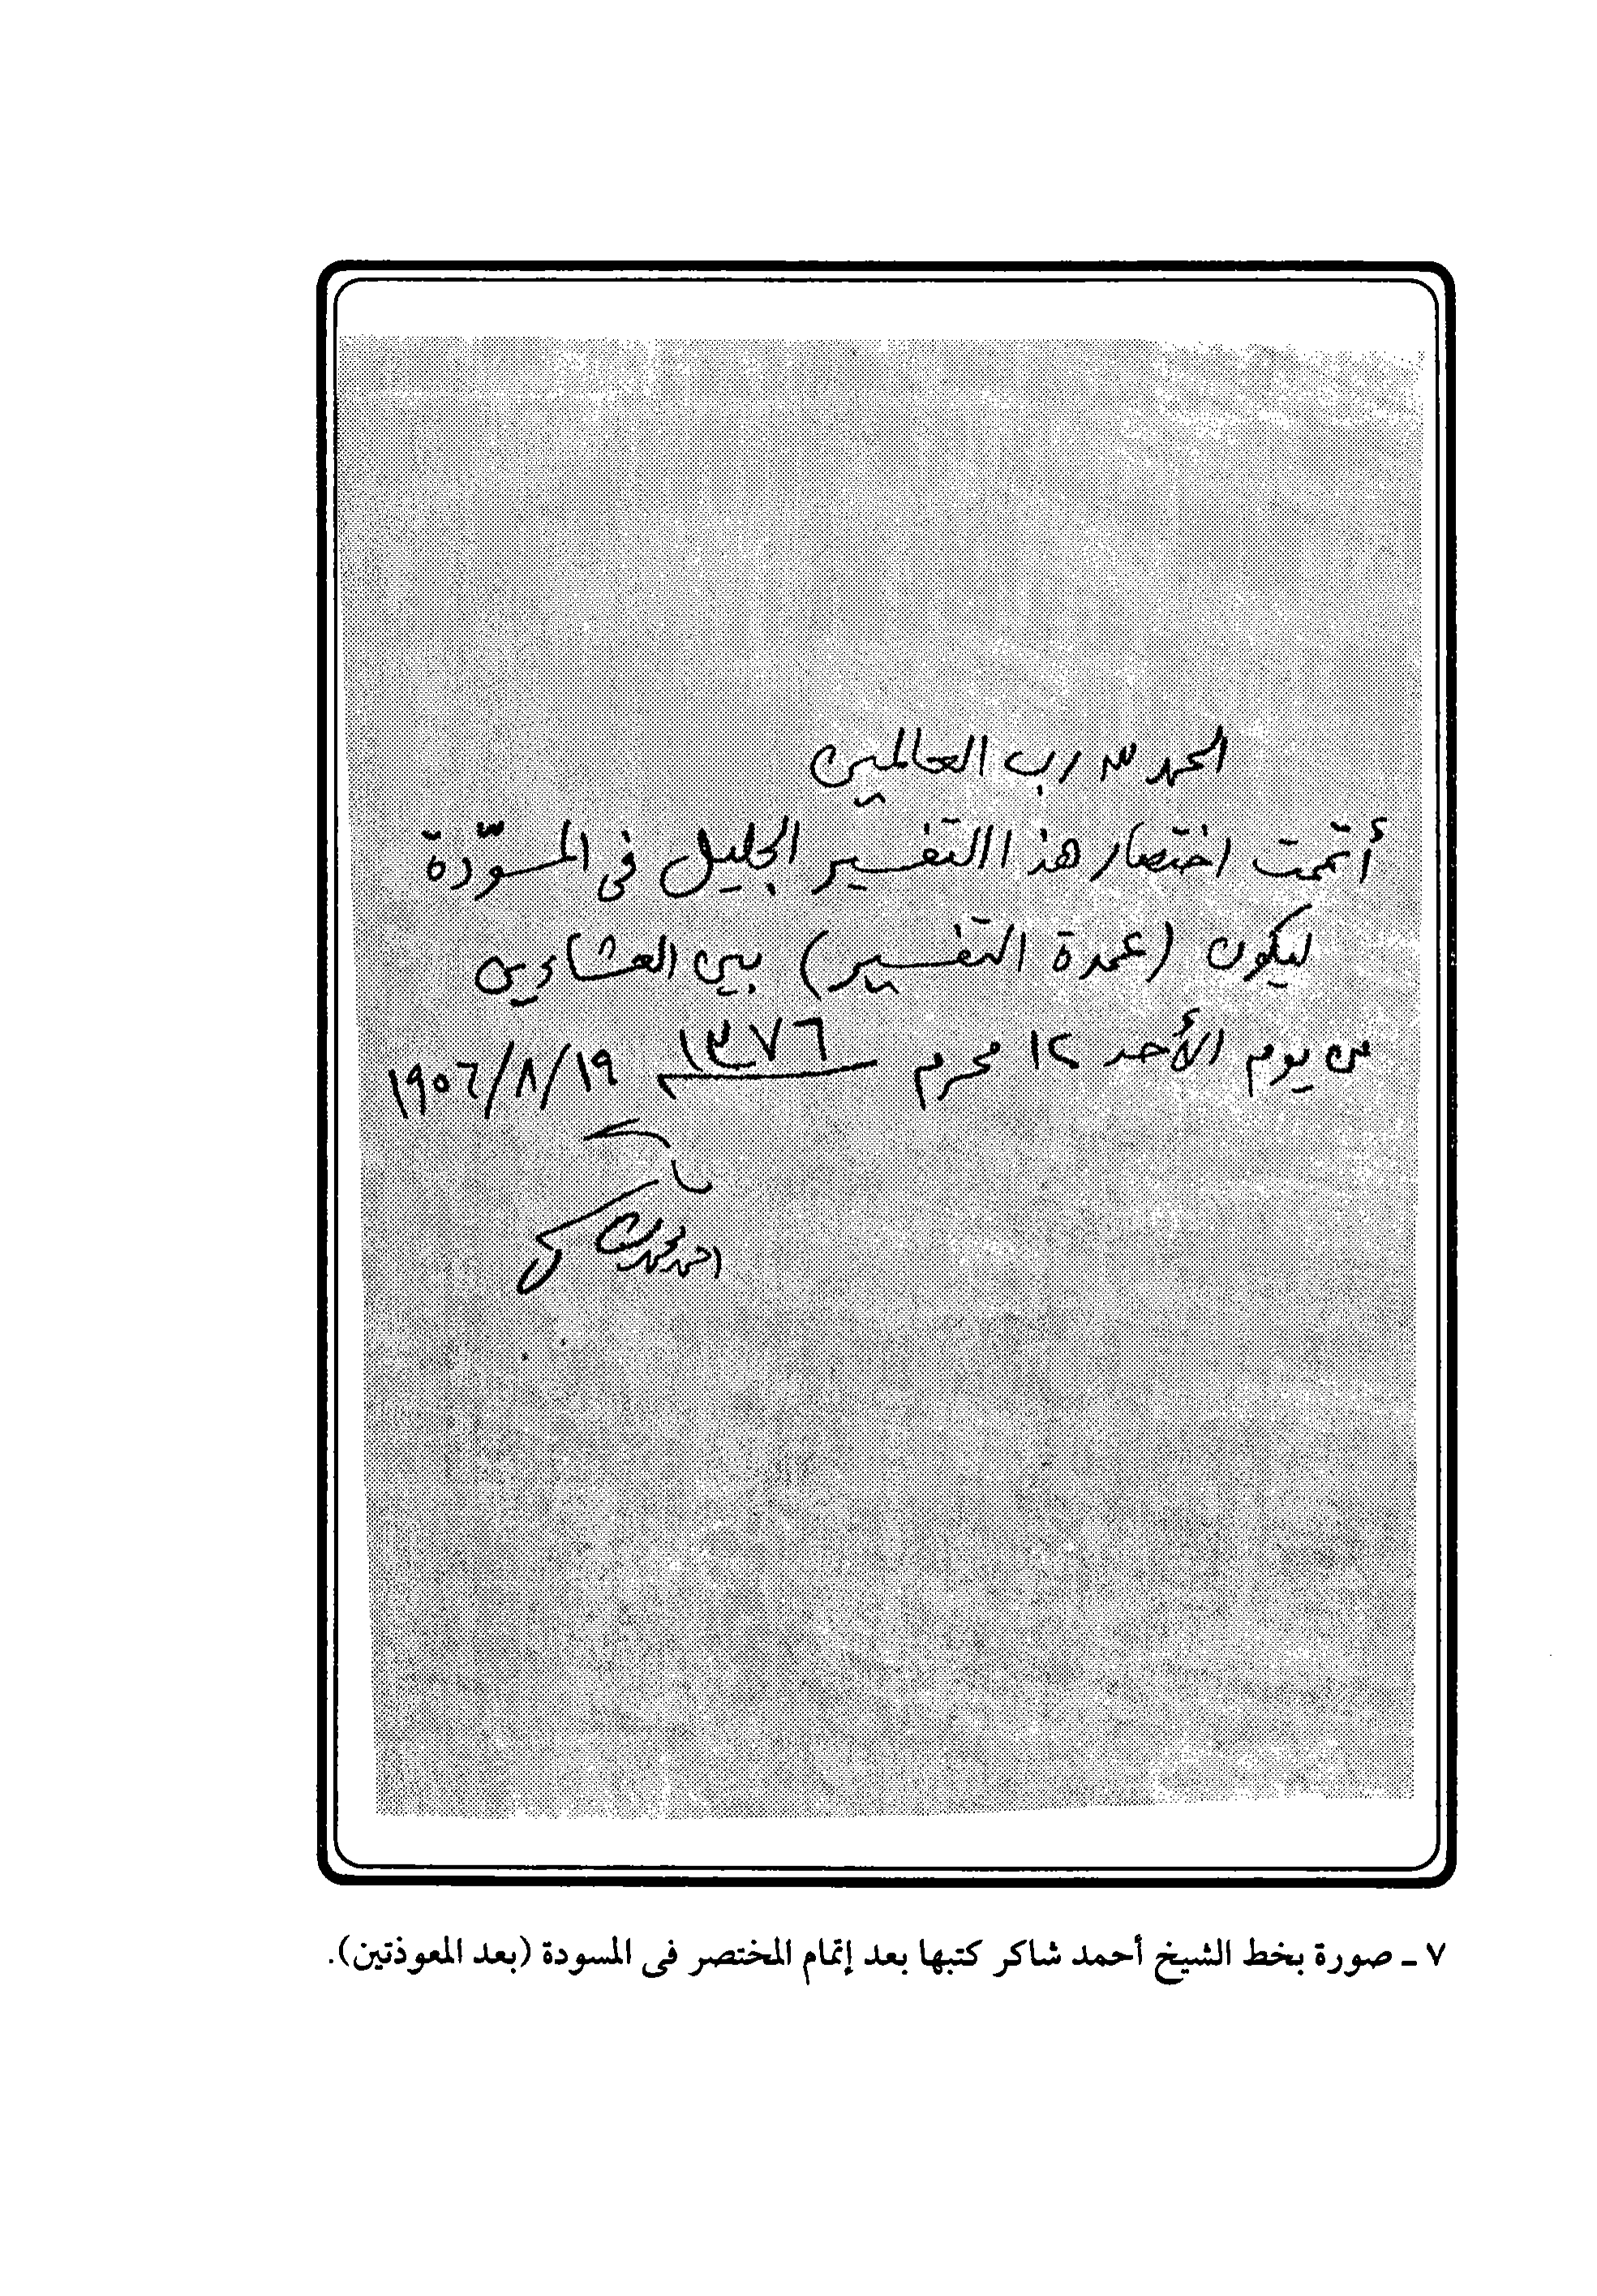 الحمد لله رب العالمين
أتممت اختصار هذا التفسير الجليل في المسوّدة
ليكون (عمدة التفسير) بين العشاءين
من يوم الأحد ١٢ محرم ١٣٧٦ ١٩/٨/١٩٥٦
أحمد محمد شاكر
٧ ـ صورة بخط الشيخ أحمد شاكر كتبها بعد إتمام المختصر فى المسودة (بعد المعوذتين).